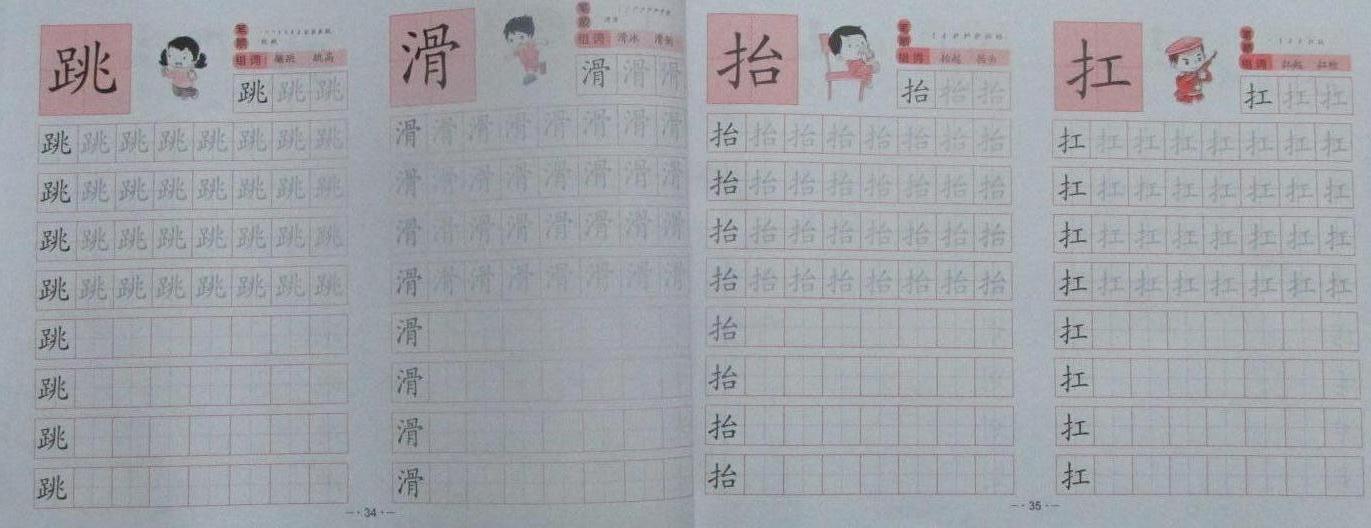 跳
笔顺
组词 跳高
跳跳跳
跳跳跳跳跳跳跳跳
跳跳跳跳跳跳跳跳
跳跳跳跳跳跳跳跳
跳跳跳跳跳跳跳跳
跳
跳
跳
跳
滑
笔顺
组词 滑冰
滑滑滑
滑滑滑滑滑滑滑滑
滑滑滑滑滑滑滑滑
滑滑滑滑滑滑滑滑
滑滑滑滑滑滑滑滑
滑
滑
滑
滑
34
抬
笔顺
组词 抬起 抬头
抬抬抬
抬抬抬抬抬抬抬抬
抬抬抬抬抬抬抬抬
抬抬抬抬抬抬抬抬
抬抬抬抬抬抬抬抬
抬
抬
抬
抬
扛
笔顺
组词 扛起 扛枪
扛扛扛
扛扛扛扛扛扛扛扛
扛扛扛扛扛扛扛扛
扛扛扛扛扛扛扛扛
扛扛扛扛扛扛扛扛
扛
扛
扛
扛
35